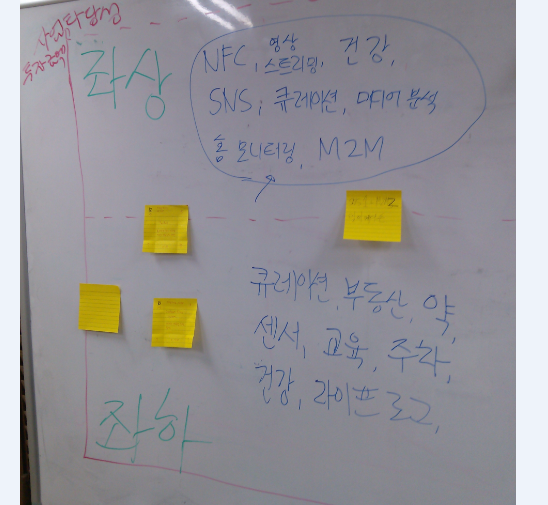 사업타당성
투자금액
좌상
NFC, 영상 스트리밍, 건강,
SNS, 큐레이션, 미디어 분석
홈 모니터링, M2M
큐레이션, 부동산, 약,
센서, 교육, 주차,
건강, 라이프로그,
좌하